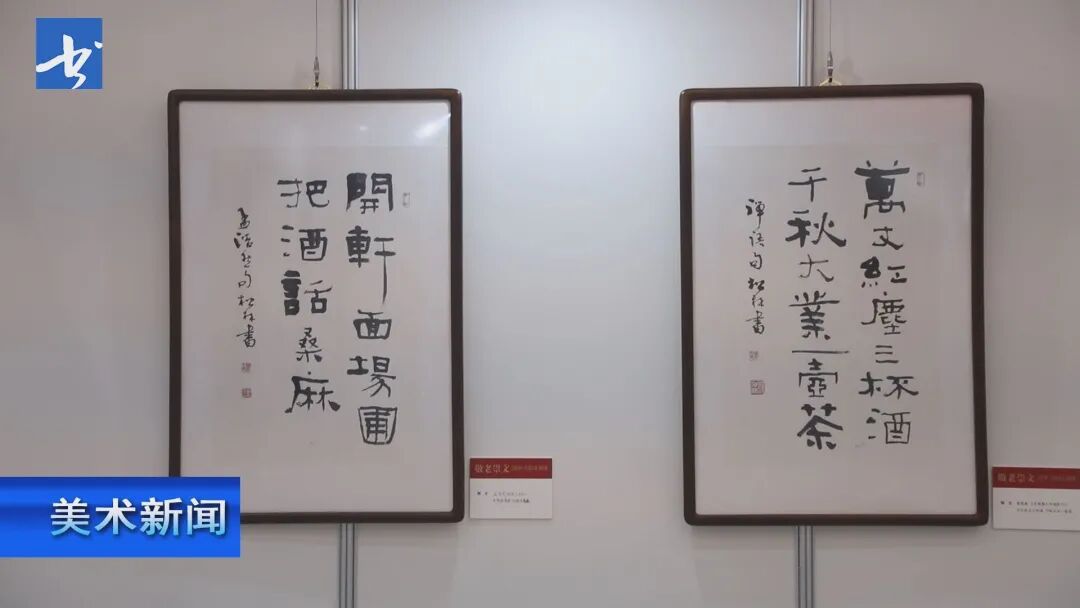 開軒面場圃
把酒話桑麻
孟浩然句 松林書
萬丈紅塵三杯酒
千秋大業一壺茶
禪語句 松林書
敬老崇文
敬老崇文
美术新闻